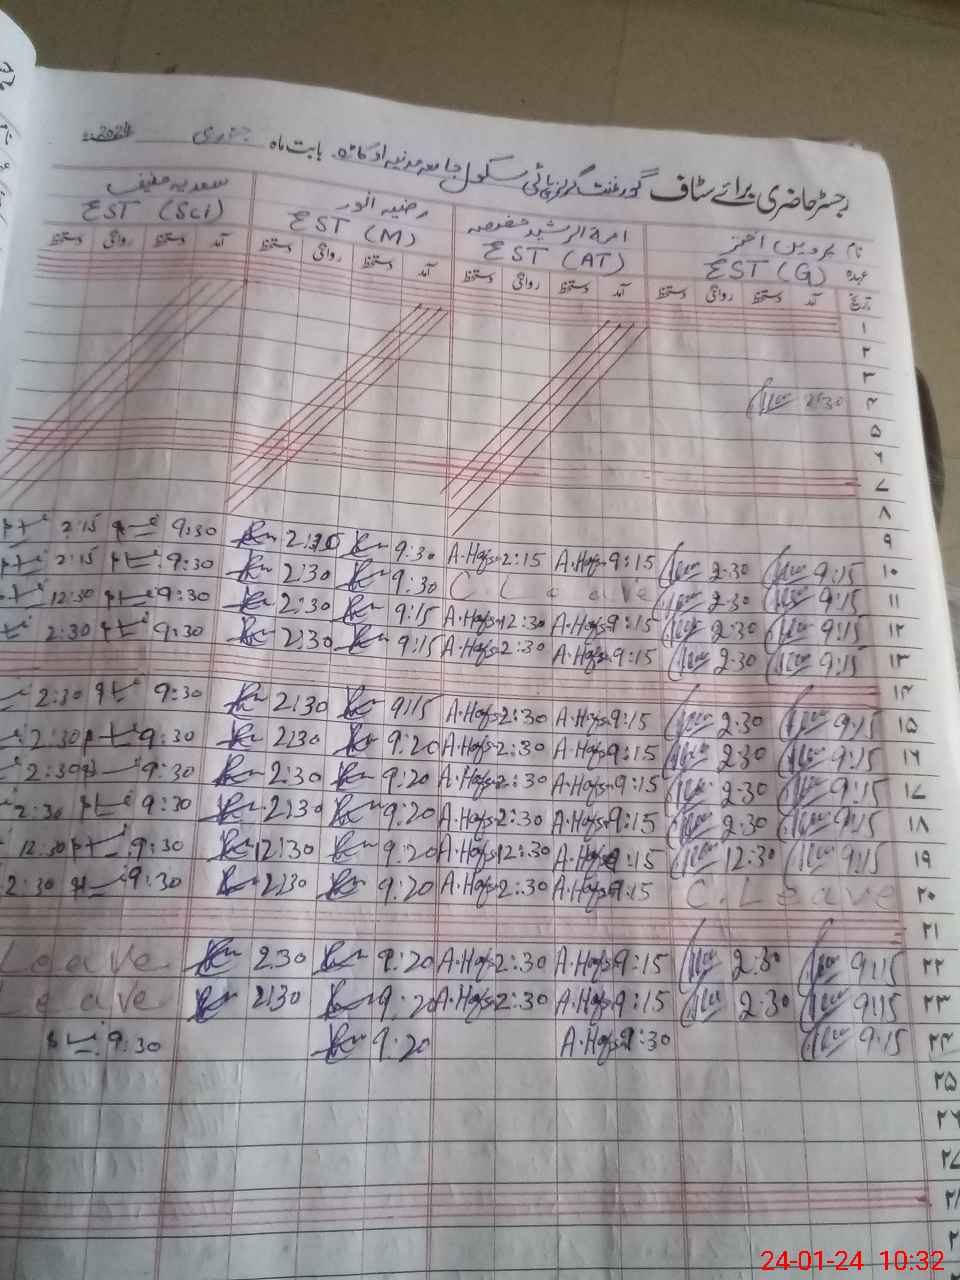 رجسٹر حاضری برائے سٹاف گورنمنٹ گرلز ہائی سکول جامعہ مدنیہ اوکاڑہ بابت ماہ جنوری
نام پروین اختر امۃ الرشید حفصہ رضیہ انور سعدیہ حنیف
عہدہ EST (G) EST (AT) EST (M) EST (Sci)
تاریخ آمد دستخط روانگی دستخط آمد دستخط روانگی دستخط آمد دستخط روانگی دستخط آمد دستخط روانگی
۱
۲
۳
۴ 2:30
۵
۶
۷
۸
۹
۱۰ 9:15 2:30 A.Hafs 9:15 A.Hafs 2:15 9:30 2:30 9:30 2:15
۱۱ 9:15 2:30 C. Leave 9:30 2:30 9:30 2:15
۱۲ 9:15 2:30 A.Hafs 9:15 A.Hafs 12:30 9:15 2:30 9:30 12:30
۱۳ 9:15 2:30 A.Hafs 9:15 A.Hafs 2:30 9:15 2:30 9:30 2:30
۱۴
۱۵ 9:15 2:30 A.Hafs 9:15 A.Hafs 2:30 9:15 2:30 9:30 2:30
۱۶ 9:15 2:30 A.Hafs 9:15 A.Hafs 2:30 9:20 2:30 9:30 2:30
۱۷ 9:15 2:30 A.Hafs 9:15 A.Hafs 2:30 9:20 2:30 9:30 2:30
۱۸ 9:15 2:30 A.Hafs 9:15 A.Hafs 2:30 9:20 2:30 9:30 2:30
۱۹ 9:15 12:30 A.Hafs 9:15 A.Hafs 12:30 9:20 12:30 9:30 12:30
۲۰ C. Leave A.Hafs 9:15 A.Hafs 2:30 9:20 2:30 9:30 2:30
۲۱
۲۲ 9:15 2:30 A.Hafs 9:15 A.Hafs 2:30 9:20 2:30 Leave
۲۳ 9:15 2:30 A.Hafs 9:15 A.Hafs 2:30 9:20 2:30 Leave
۲۴ 9:15 A.Hafs 9:30 9:20 9:30
۲۵
۲۶
۲۷
۲۸
24-01-24 10:32